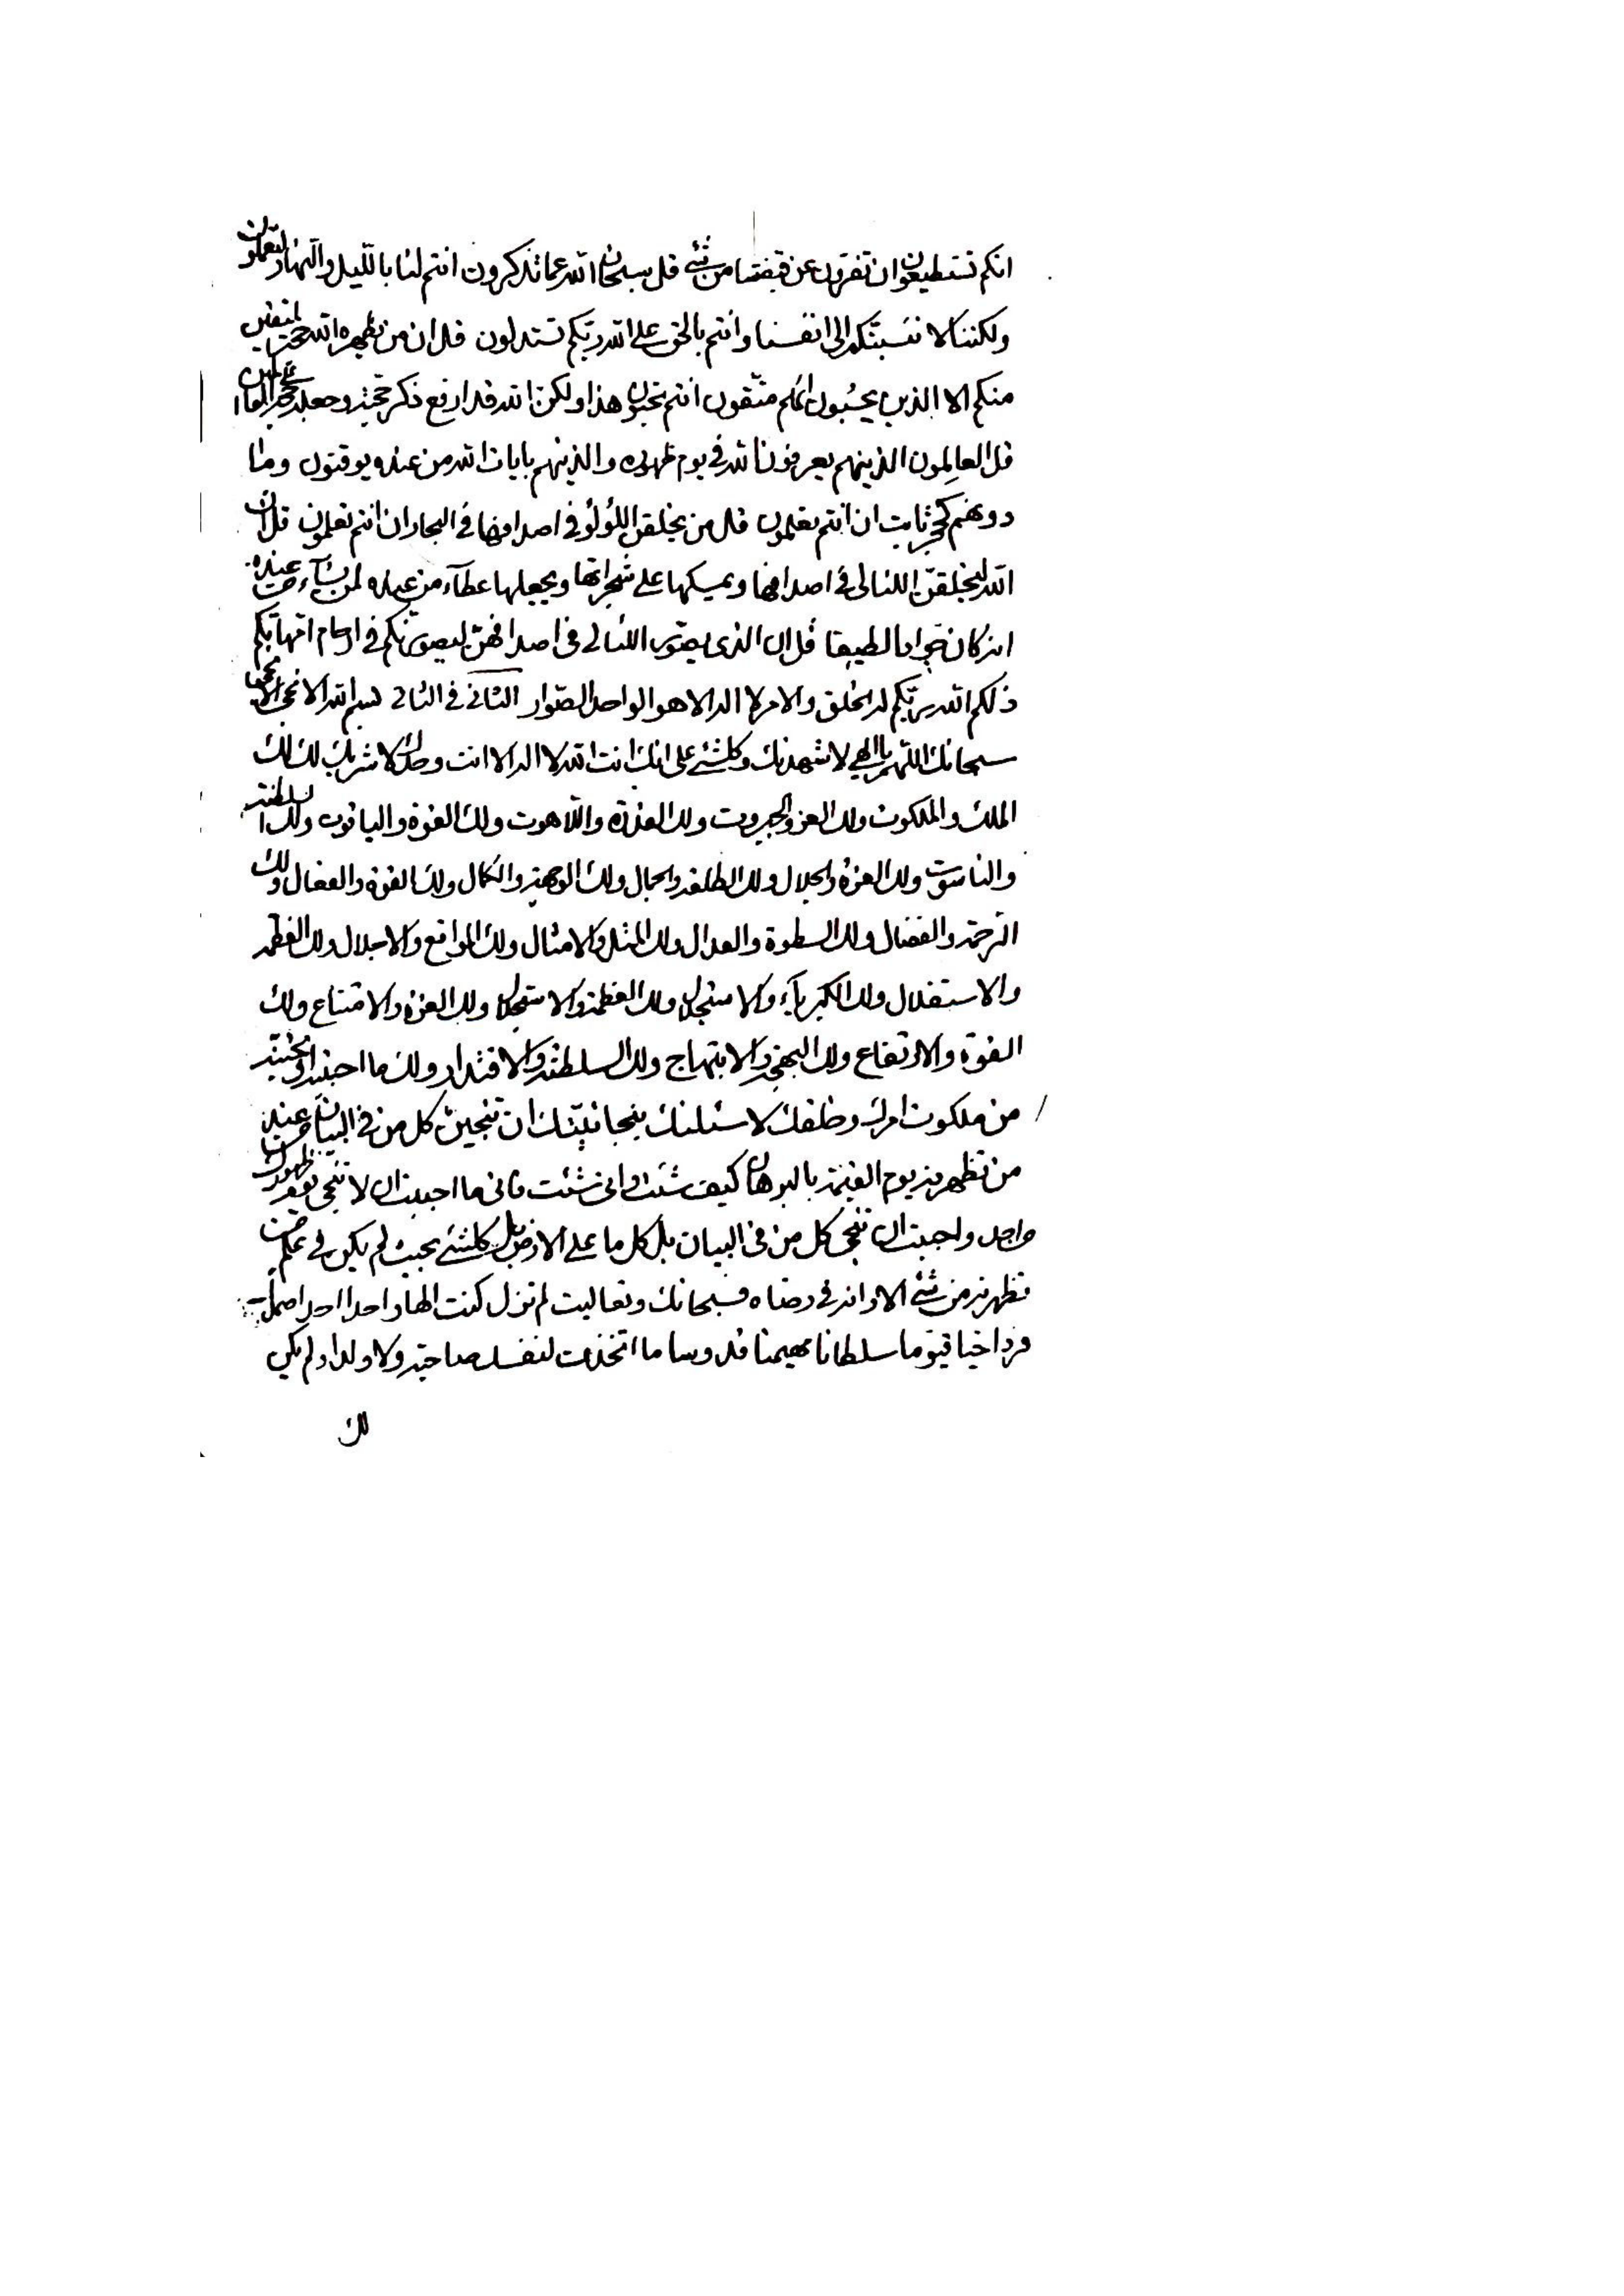 انكم تستطيعون ان تفرون عن قبضتنا من شئ قل سبحان الله عما تذكرون انتم لنا بالليل والنهار لتعملون
ولكننا لا ننسبنكم الى انفسنا وانتم بالحق على الله ربكم تستدلون قل ان من يظهره الله
منكم الا الذين يحسبون انهم متقون انتم تحبون هذا ولكن الله قد ارفع ذكر حجته وجعله
قل العالمون الذينهم يعرفون الله في يوم ظهوره والذينهم بايات الله من عنده يوقنون وما
دونهم كحجر ثابت ان انتم تعلمون قل من يخلق اللؤلؤ في اصدافها في البحار ان انتم تعلمون قل ان
الله ليخلقن اللئالى في اصدافها ويمسكها على شجراتها ويجعلها عطآء من عنده لمن يشآء من عبده
انه كان جوادا لطيفا قل ان الذى يصور اللئالى في اصدافهن ليصورنكم في ارحام امهاتكم
ذلكم الله ربكم له الخلق والامر لا اله الا هو الواحد الصوار الثانى فى الثانى بسم الله الانجى الانجى
سبحانك اللهم يا الهى لاشهدنك وكلشئ على انك انت الله لا اله الا انت وحدك لا شريك لك لك
الملك والملكوت ولك العز والجبروت ولك القدرة واللاهوت ولك القوة والياقوت ولك السلطنة
والناسوت ولك العزة والجلال ولك الطلعة والجمال ولك الوجهة والكمال ولك القوة والفعال ولك
الرحمة والفضال ولك السطوة والعدال ولك المثل والامثال ولك المواقع والاجلال ولك العظمة
والاستقلال ولك الكبريآء والاستجلال ولك العظمة والاستجلال ولك العزة والامتناع ولك
القوة والارتفاع ولك البهجة والابتهاج ولك السلطنة والاقتدار ولك ما احببته او تحبنه
من ملكوت امرك وخلقك لاسئلنك بنجانيتك ان تنجين كل من فى البيان عند
من تظهرنه يوم القيمة بالبرهان كيف شئت وانى شئت فانى ما احببت ان لا تنجى نفس
واحد واحببت ان تنجى كل من فى البيان بل كل ما على الارض بل كلشئ بحيث لم يكن فى علم من
تظهرنه من شئ الا وانه فى رضاه فسبحانك وتعاليت لم تزل كنت الها واحدا احدا صمدا
فردا حيا قيوما سلطانا مهيمنا قدوسا ما اتخذت لنفسك صاحبة ولا ولدا ولم يكن
لك